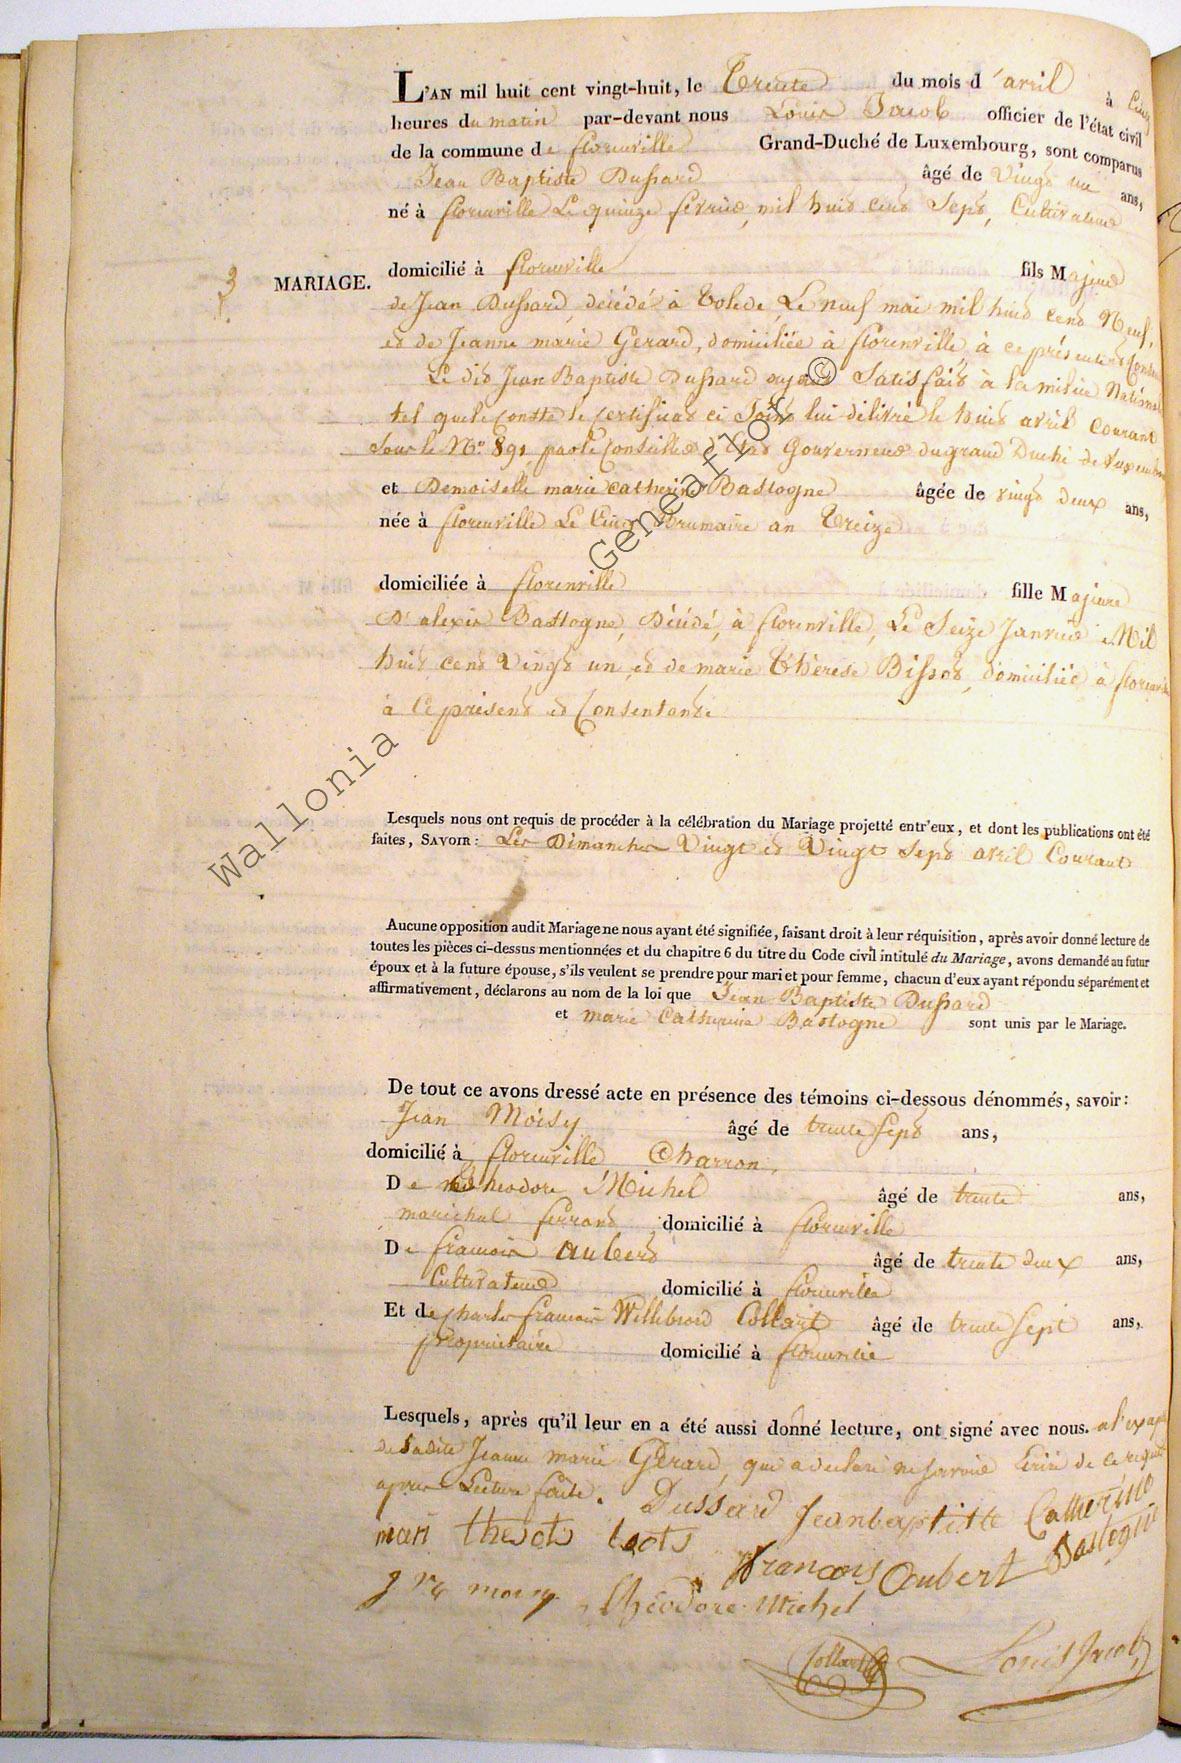 L'AN mil huit cent vingt-huit, le Trente du mois d'avril à Cinq
heures du matin par-devant nous Louis Jacob officier de l'état civil
de la commune de florenville Grand-Duché de Luxembourg, sont comparus
Jean Baptiste Dussard âgé de vingt un ans,
né à florenville Le quinze février mil huit cent Sept, Cultivateur
3
MARIAGE.
domicilié à florenville fils Majeur
de Jean Dussard, décédé à Tolede, Le neuf mai mil huit cent Neuf,
et de Jeanne marie Gerard, domiciliée à florenville, à ce présente et
Le dit Jean Baptiste Dussard ayant Satisfait à la milice National
tel que le conste le certificat ci Joint lui délivré le huit avril courant
Sous le No. 891 par le Conseiller d'Etat Gouverneur du grand Duché de Luxembourg
et Demoiselle marie catherine Bastogne âgée de vingt deux ans,
née à florenville Le Cinq Brumaire an Treize
domiciliée à florenville fille Majeure
D'alexis Bastogne, Décédé, à florenville, Le Seize Janvier Mil
huit cent Vingt un, et de marie Thérese Bissot, domiciliée à florenville
à Ce présent et Consentante
Lesquels nous ont requis de procéder à la célébration du Mariage projetté entr'eux, et dont les publications ont été
faites, SAVOIR: Les Dimanches Vingt et Vingt Sept avril Courant
Aucune opposition audit Mariage ne nous ayant été signifiée, faisant droit à leur réquisition, après avoir donné lecture de
toutes les pièces ci-dessus mentionnées et du chapitre 6 du titre du Code civil intitulé du Mariage, avons demandé au futur
époux et à la future épouse, s'ils veulent se prendre pour mari et pour femme, chacun d'eux ayant répondu séparément et
affirmativement, déclarons au nom de la loi que Jean Baptiste Dussard
et marie Catherine Bastogne sont unis par le Mariage.
De tout ce avons dressé acte en présence des témoins ci-dessous dénommés, savoir:
Jean Moisy âgé de trente Sept ans,
domicilié à florenville Charron,
De theodore Michel âgé de trente ans,
marichal ferrant domicilié à florenville
De francois Aubert âgé de trente deux ans,
Cultivateur domicilié à florenville
Et de charles francois Willibrord Collart âgé de trente Sept ans,
propriétaire domicilié à florenville
Lesquels, après qu'il leur en a été aussi donné lecture, ont signé avec nous. a l'
de Ladite Jeanne marie Gérard, qui a declaré ne Savoir Ecrire de ce requise
apres Lecture faite. Dussard Jeanbaptitte Catherine
Bastogne
mari
francois Aubert
Théodore Michel
Collart
Louis Jacob
Wallonia Geneaflor ©